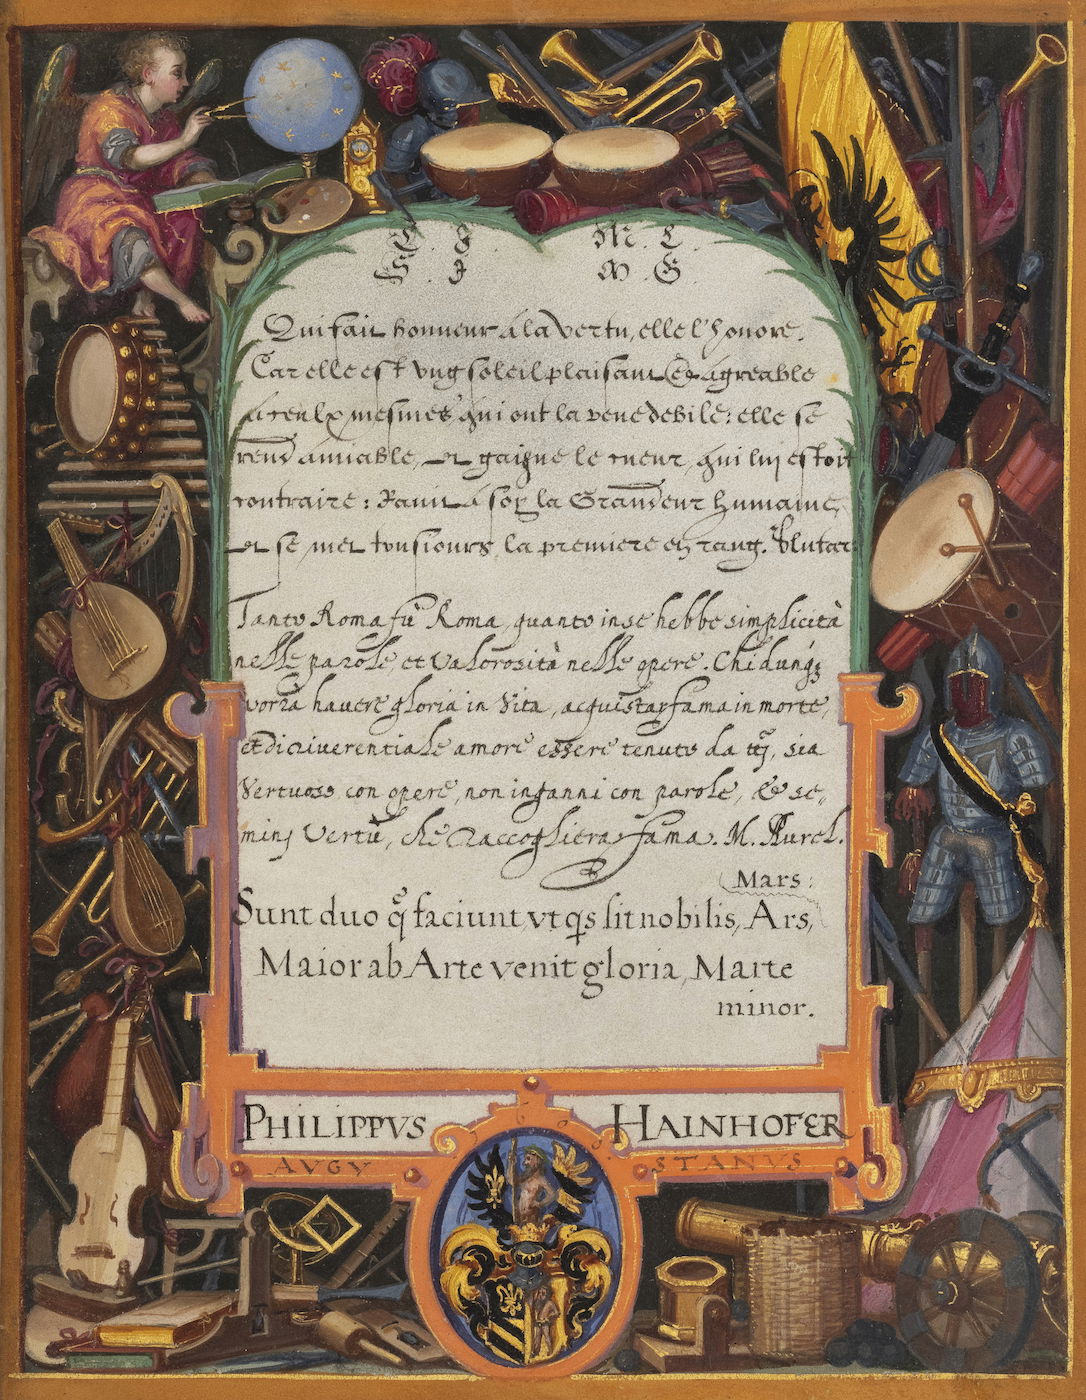 M. C.
M. G.
Qui fait honneur à la vertu, elle l'honore.
Car elle est vng soleil plaisant & agreable
à ceulx mesmes qui ont la veue debile: elle se
rend amiable, et gaigne le cueur, qui luy estoit
contraire: Ravit à soy la Grandeur humaine,
et se met tousiours, la premiere en rang. Plutar:
Tanto Roma fù Roma, quanto in se hebbe simplicità
nelle parole, et valorosità nelle opere. Chi dunq3
vorrà havere gloria in Vita, acquistar fama in morte,
et di riverentiale amore essere tenuto da ttj, sia
Vertuoso con opere, non inganni con parole, & se„
minj Vertù, che raccogliera fama. M. Aurel.
Mars:
Sunt duo q̃ faciunt, vt qs sit nobilis, Ars,
Maior ab Arte venit gloria, Marte
minor.
PHILIPPVS HAINHOFER
AVGV STANVS